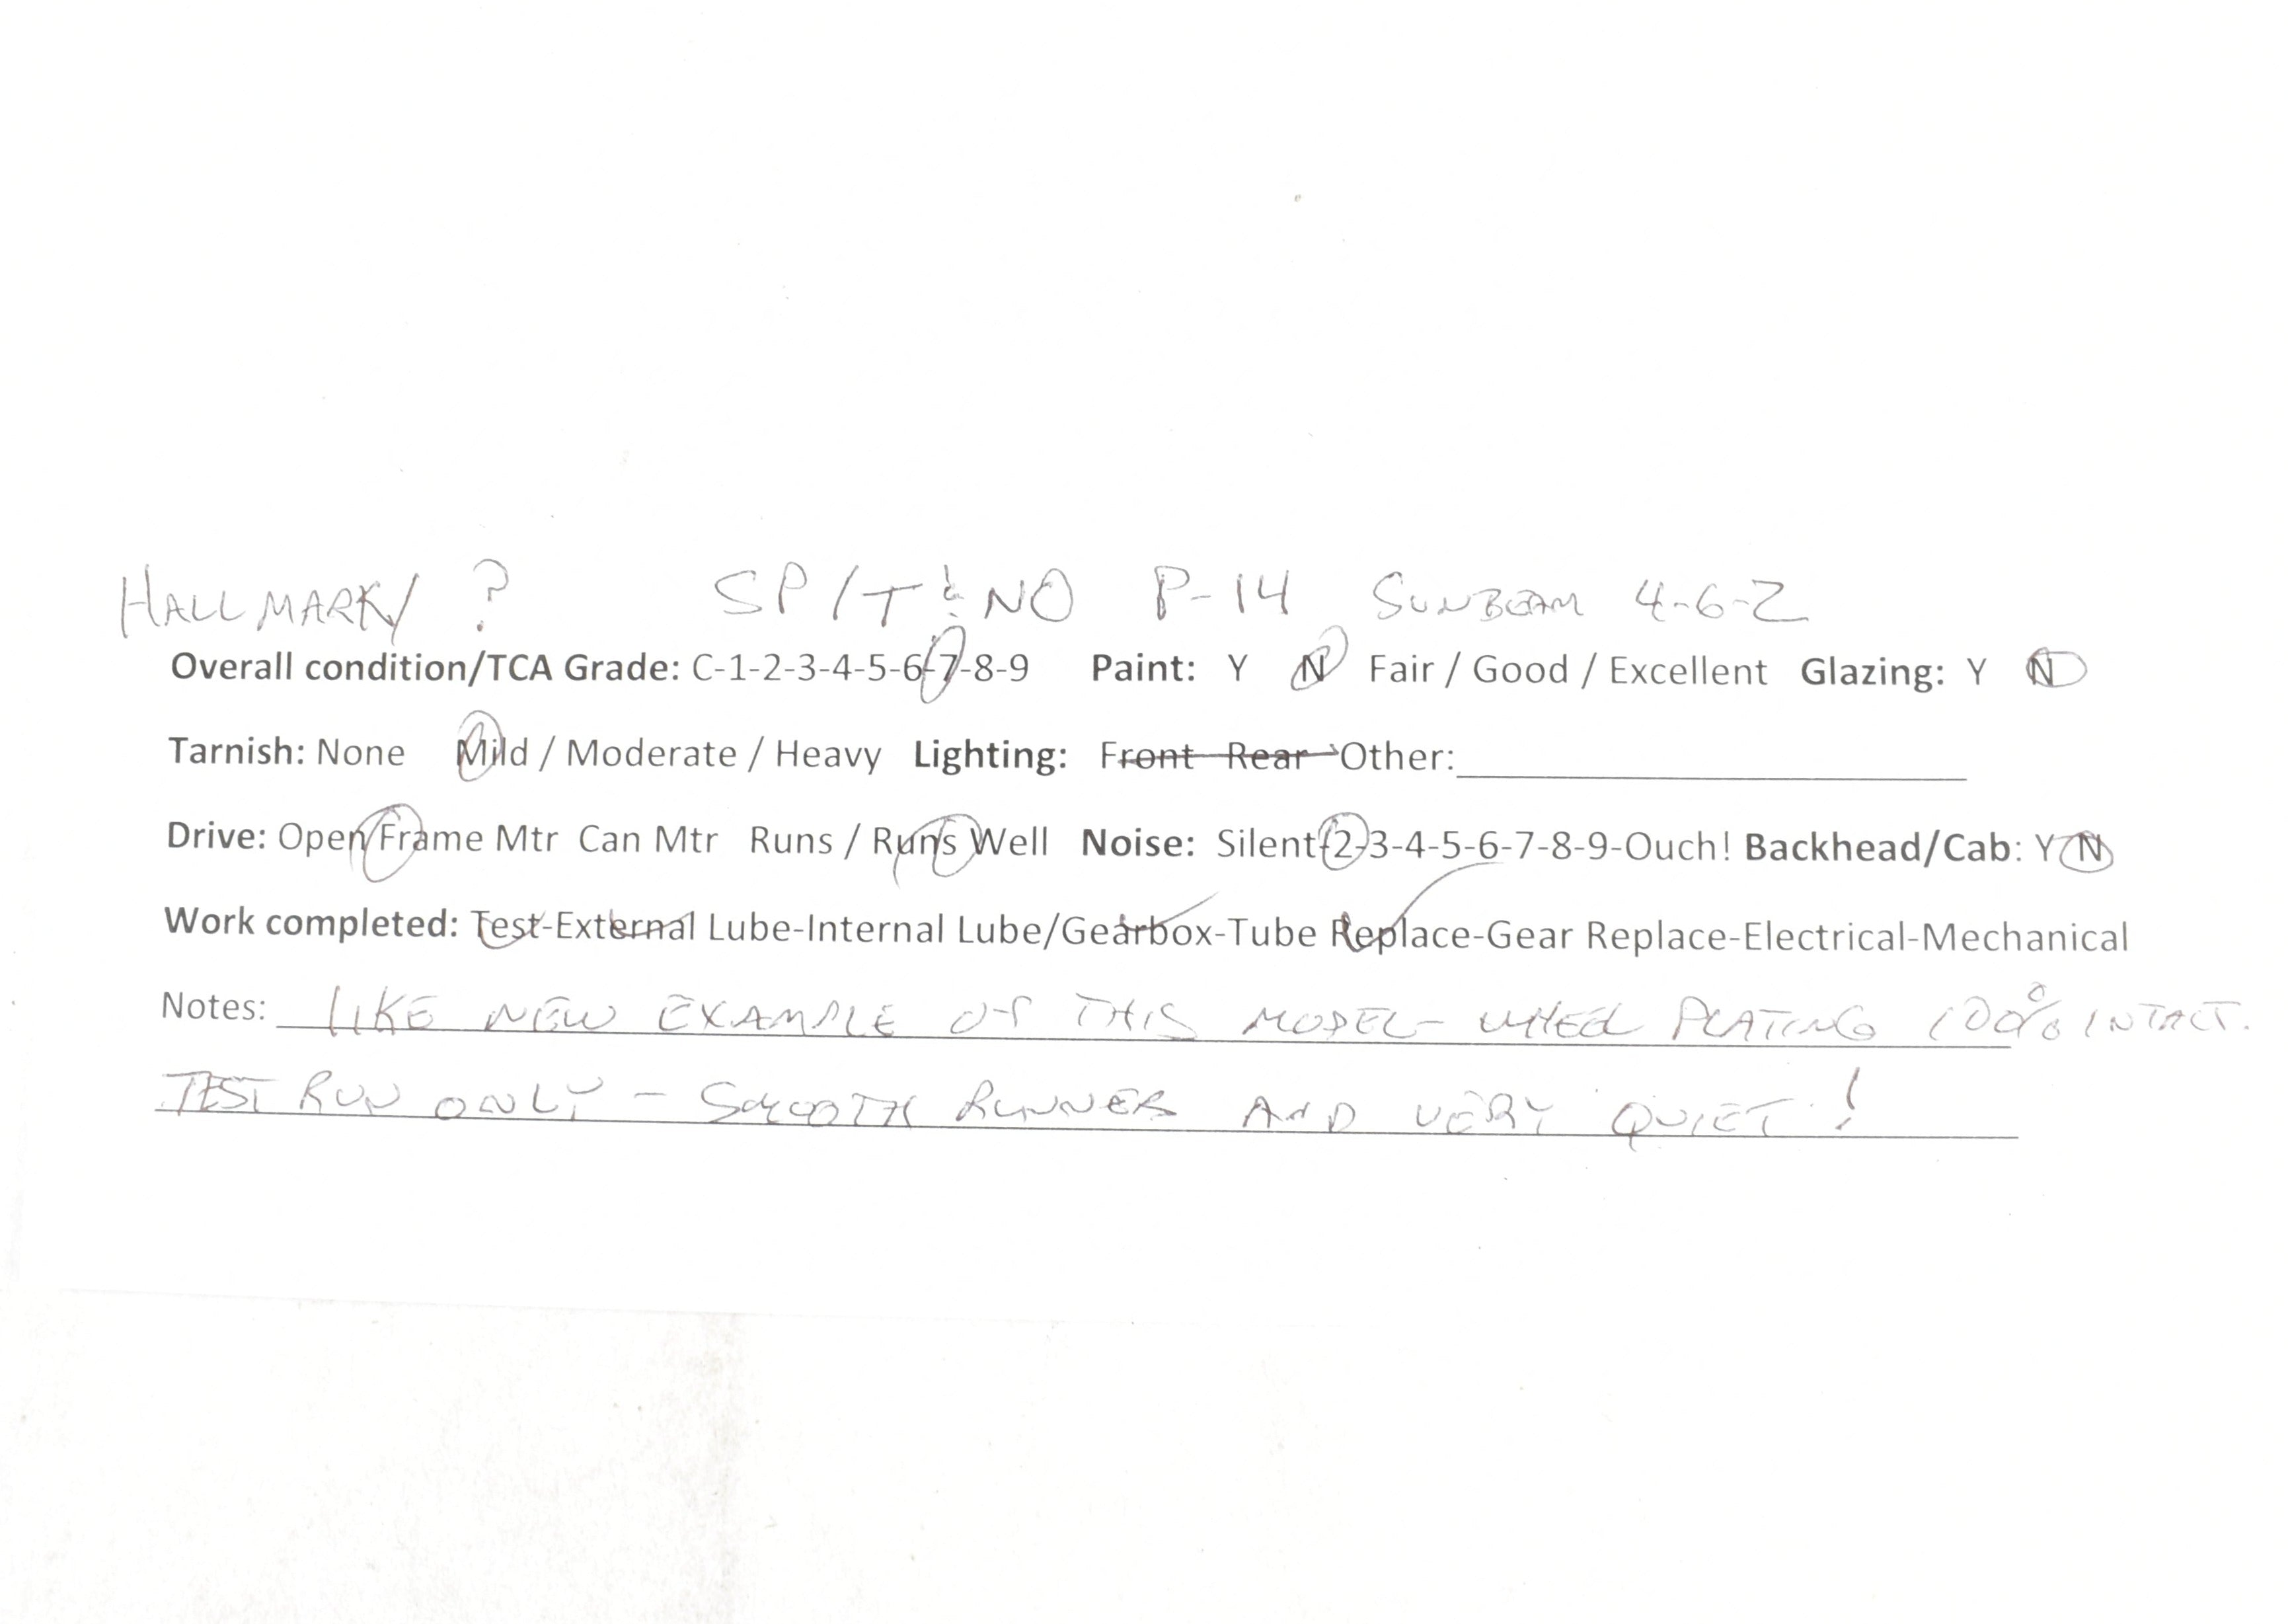 HALLMARK/ ? SP/T&NO P-14 SUNBEAM 4-6-2
Overall condition/TCA Grade: C-1-2-3-4-5-6-7-8-9 Paint: Y N Fair / Good / Excellent Glazing: Y N
Tarnish: None Mild / Moderate / Heavy Lighting: Front Rear Other:
Drive: Open Frame Mtr Can Mtr Runs / Runs Well Noise: Silent-2-3-4-5-6-7-8-9-Ouch! Backhead/Cab: Y N
Work completed: Test-External Lube-Internal Lube/Gearbox-Tube Replace-Gear Replace-Electrical-Mechanical
Notes: LIKE NEW EXAMPLE OF THIS MODEL- WHEEL PLATING 100% INTACT.
TEST RUN ONLY - SMOOTH RUNNER AND VERY QUIET!